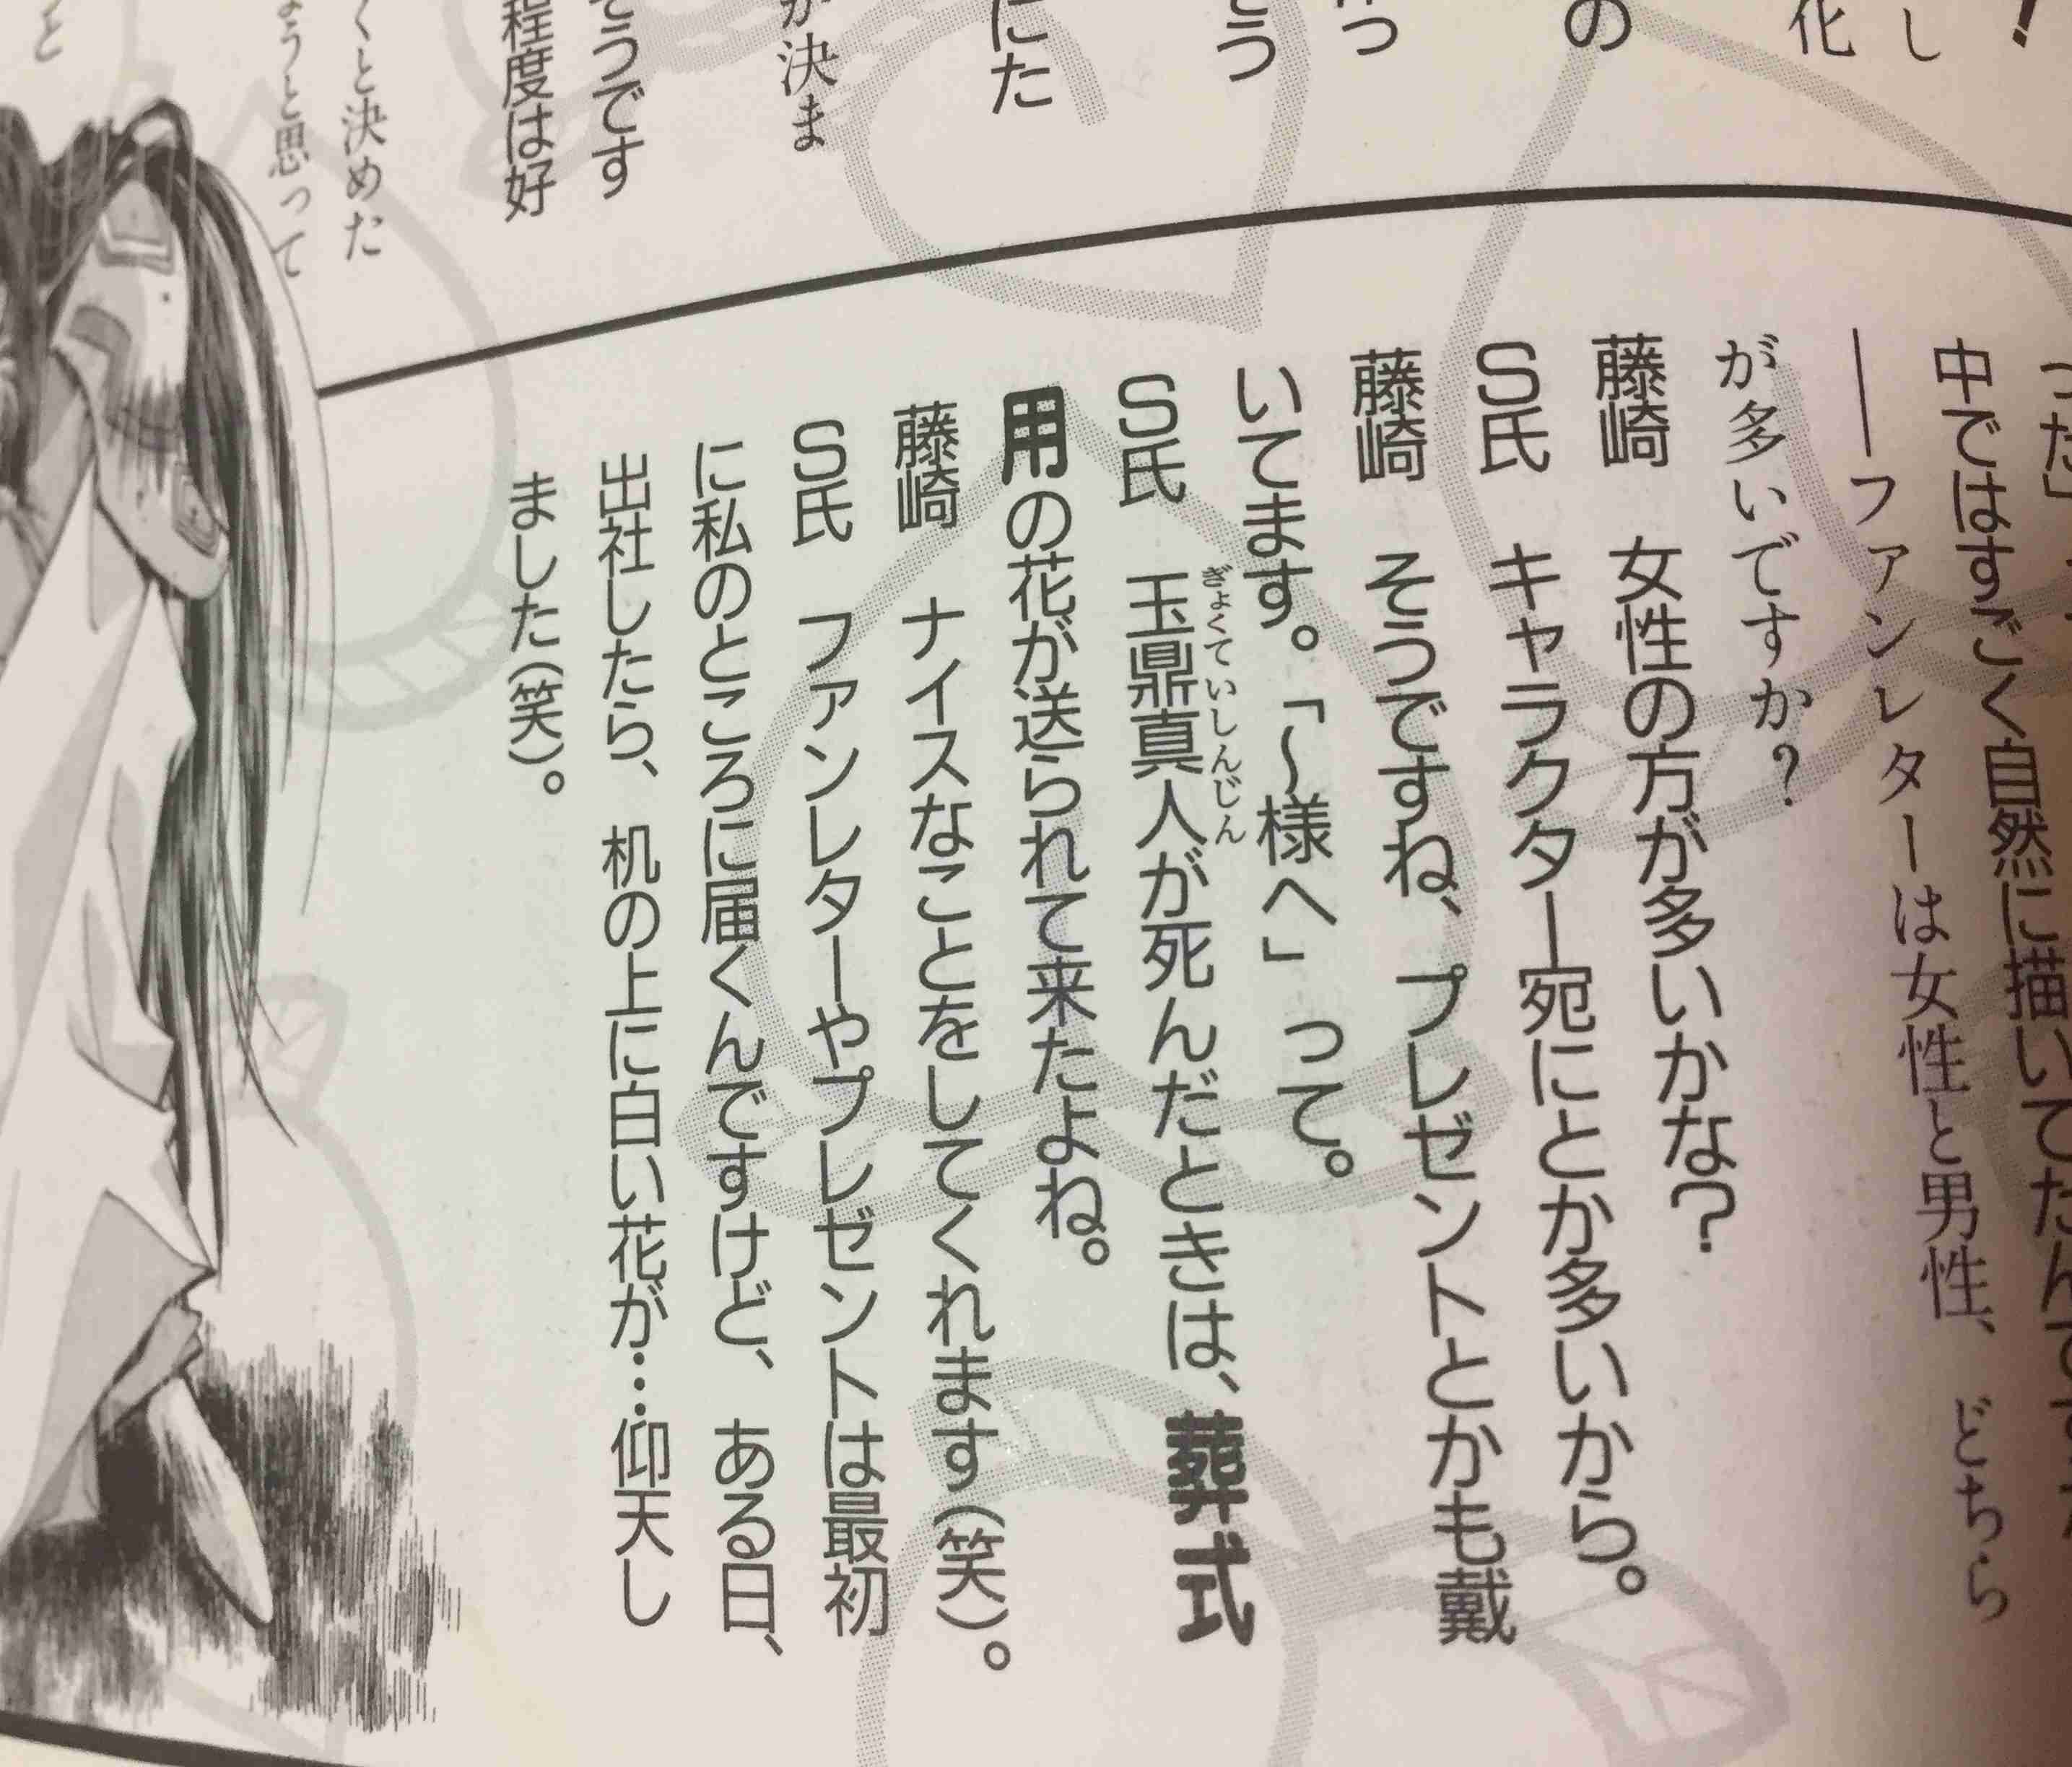 し
化
の
にた
が決ま
そうです
程度は好
くと決めた
ようと思って
と
中ではすごく自然に描いてたんです
――ファンレターは女性と男性、どちら
が多いですか？
藤崎　女性の方が多いかな？
S氏　キャラクター宛にとか多いから。
藤崎　そうですね、プレゼントとかも戴
いてます。「～様へ」って。
S氏　玉鼎真人が死んだときは、葬式
ぎょくていしんじん
用の花が送られて来たよね。
藤崎　ナイスなことをしてくれます（笑）。
S氏　ファンレターやプレゼントは最初
に私のところに届くんですけど、ある日、
出社したら、机の上に白い花が…仰天し
ました（笑）。